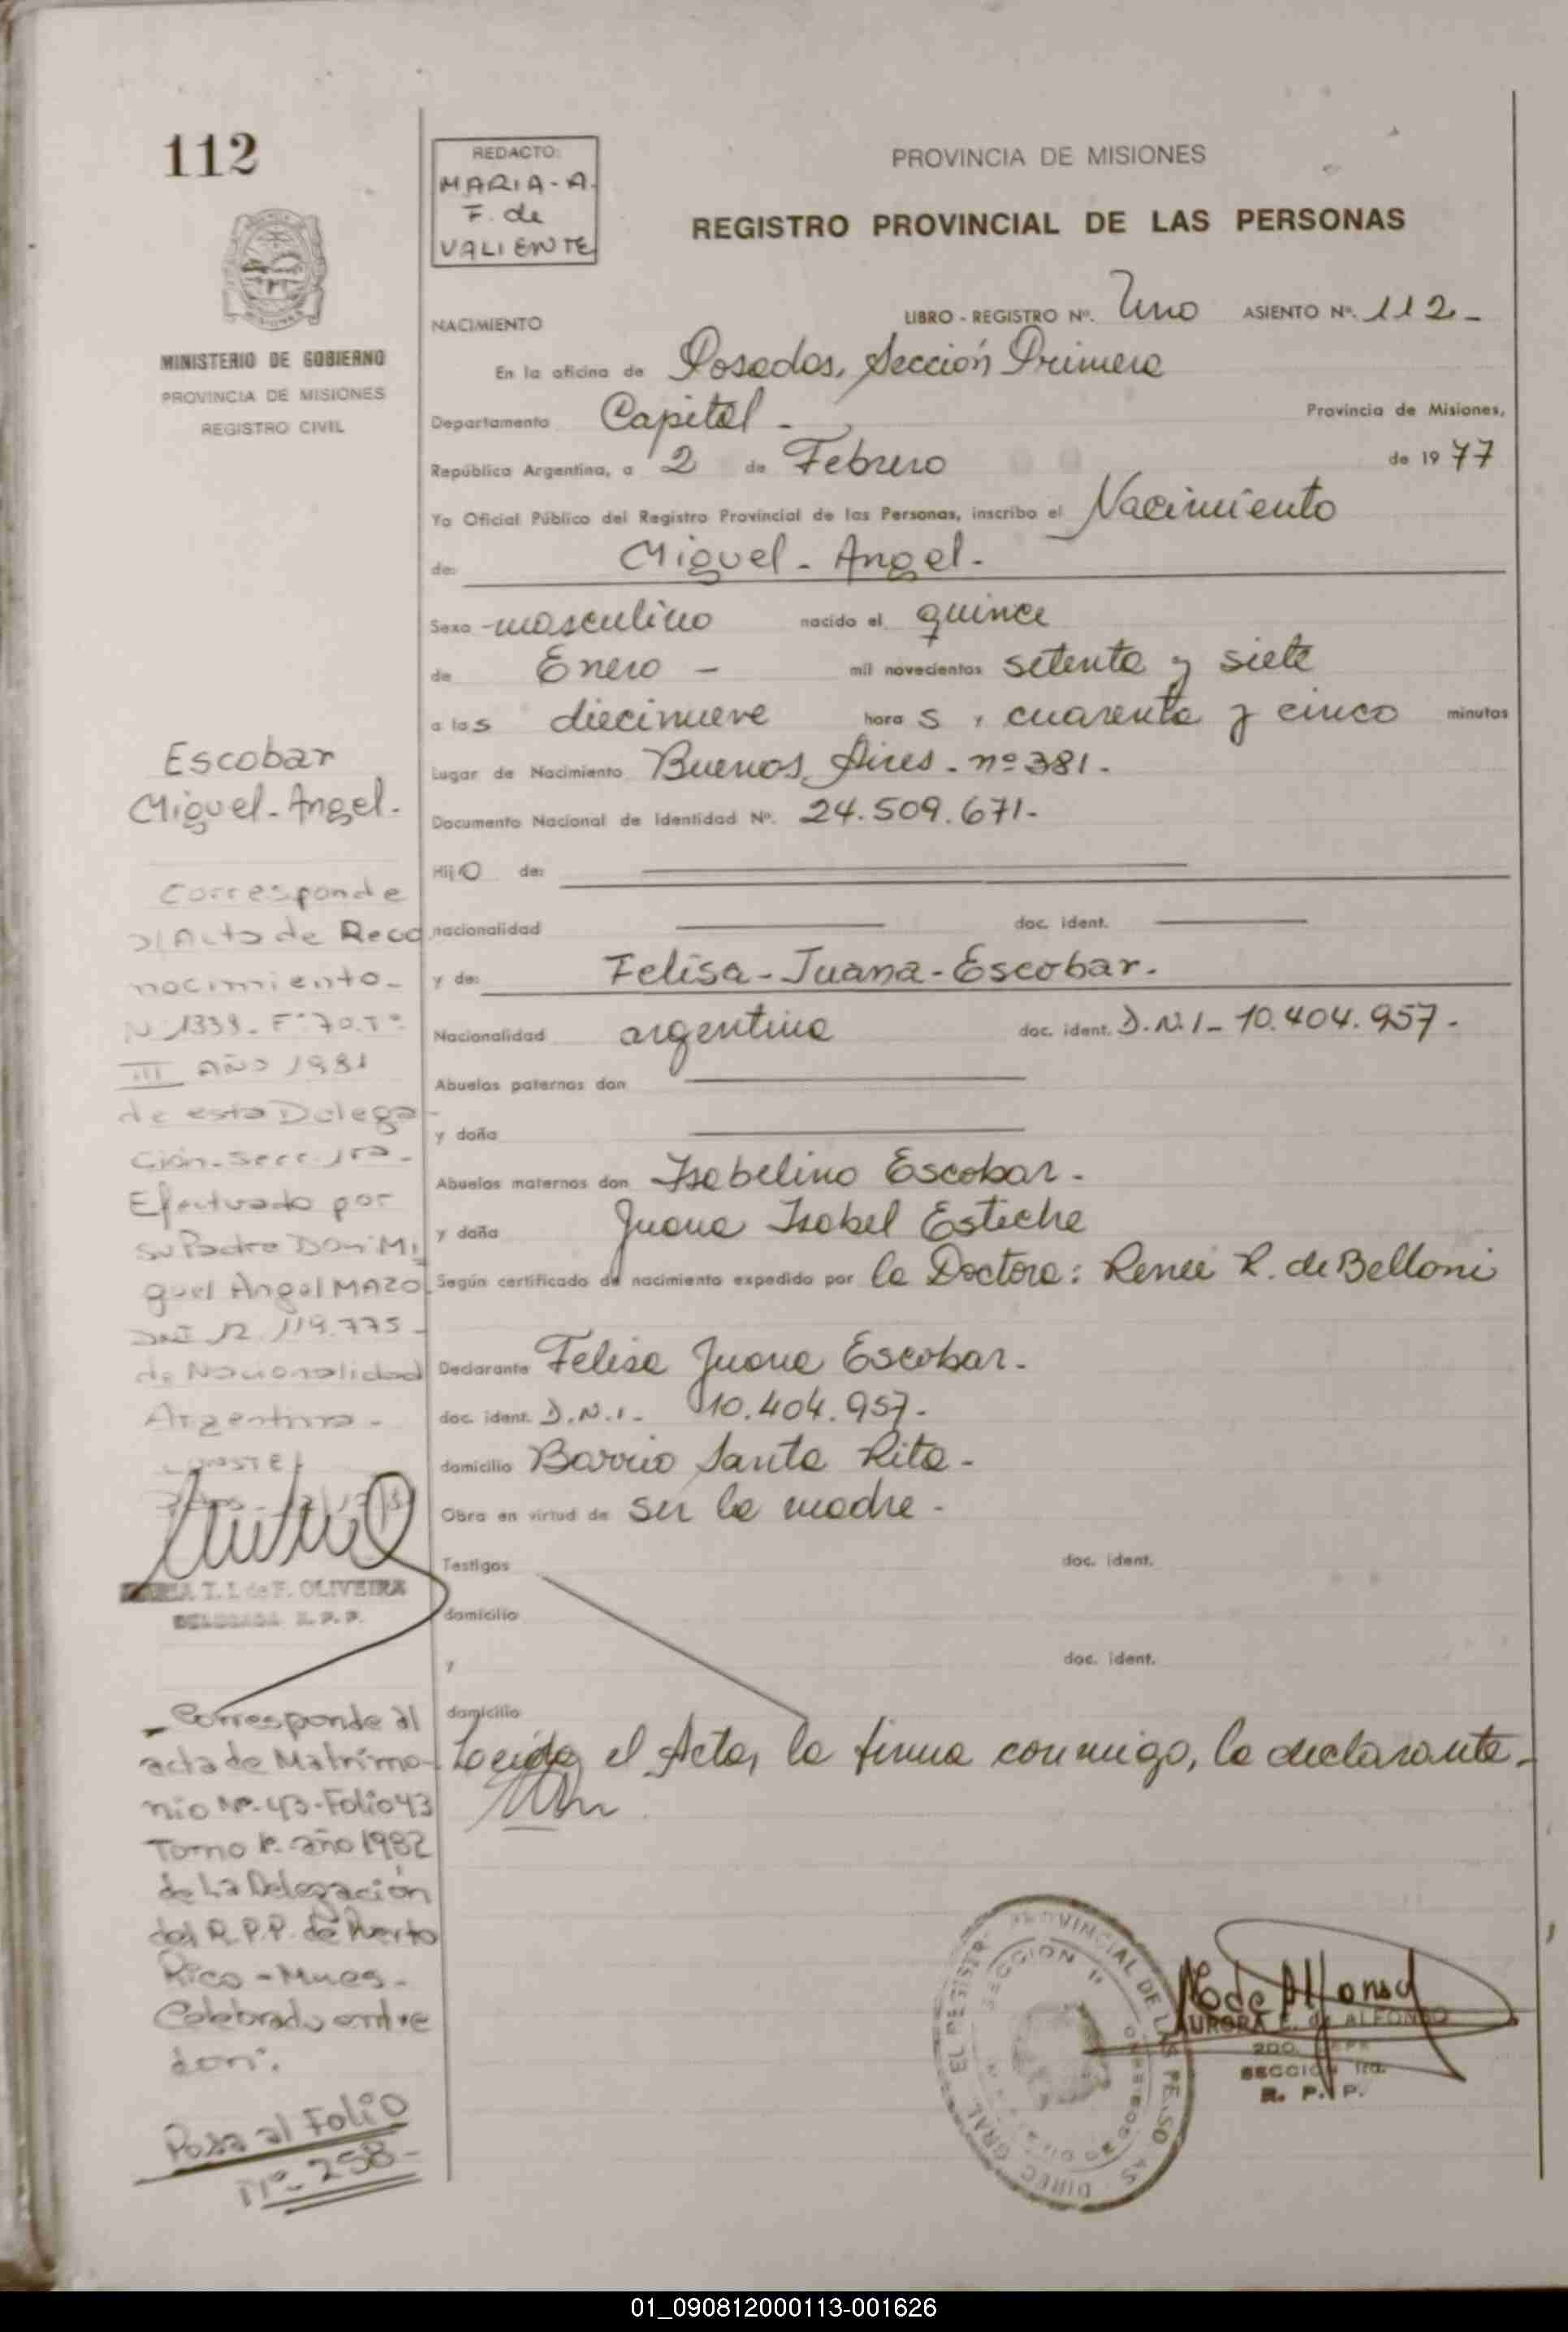 112
MINISTERIO DE GOBIERNO
PROVINCIA DE MISIONES
REGISTRO CIVIL
REDACTO:
MARIA-A.
F. de
VALIENTE
PROVINCIA DE MISIONES
REGISTRO PROVINCIAL DE LAS PERSONAS
NACIMIENTO
LIBRO - REGISTRO Nº. Uno ASIENTO Nº. 112-
En la oficina de Posadas, Sección Primera
Departamento Capital - Provincia de Misiones,
República Argentina, a 2 de Febrero de 1977
Yo Oficial Público del Registro Provincial de las Personas, inscribo el Nacimiento
de: Miguel - Angel -
Sexo - masculino nacido el quince
de Enero - mil novecientos setenta y siete
a las diecinueve horas, cuarenta y cinco minutos
Lugar de Nacimiento Buenos Aires - nº 381 -
Documento Nacional de Identidad Nº. 24.509.671-
Hijo de:
nacionalidad doc. ident.
y de: Felisa - Juana - Escobar.
Nacionalidad argentina doc. ident. D.N.I - 10.404.957 -
Abuelos paternos don
y doña
Abuelos maternos don Isabelino Escobar -
y doña Juana Isabel Esteche
Según certificado de nacimiento expedido por la Doctora: Renee R. de Belloni
Declarante Felisa Juana Escobar -
doc. ident. D.N.I - 10.404.957 -
domicilio Barrio Santa Rita -
Obra en virtud de ser la madre -
Testigos doc. ident.
domicilio
y doc. ident.
domicilio
Leída el Acta, la firma conmigo, la declarante -
Escobar
Miguel - Angel -
Corresponde
a/ Acta de Reco
nocimiento -
Nº 1339 - Fº 70. Tº
III AÑO 1981
de esta Delega
ción - Secc. 1ra -
Efectuado por
su Padre Don Mi
guel Ángel MAZO
DNI 12.119.775 -
de Nacionalidad
Argentina -
CONSTE/
T. I. de F. OLIVEIRA
DELEGADA R. P. P.
- Corresponde al
acta de Matrimo-
nio Nº - 43 - Folio 43
Tomo 1º - año 1982
de La Delegación
del R.P.P. de Puerto
Rico - Mnes -
Celebrado entre
don:
Pasa al Folio
Nº - 258 -
DIREC. GRAL. EL REGISTR. PROVINCIAL DE LAS PERSONAS
SECCION 1ª
AURORA E. de ALFONSO
2DO. JEFE
SECCION 1ra.
R. P. P.
01_090812000113-001626